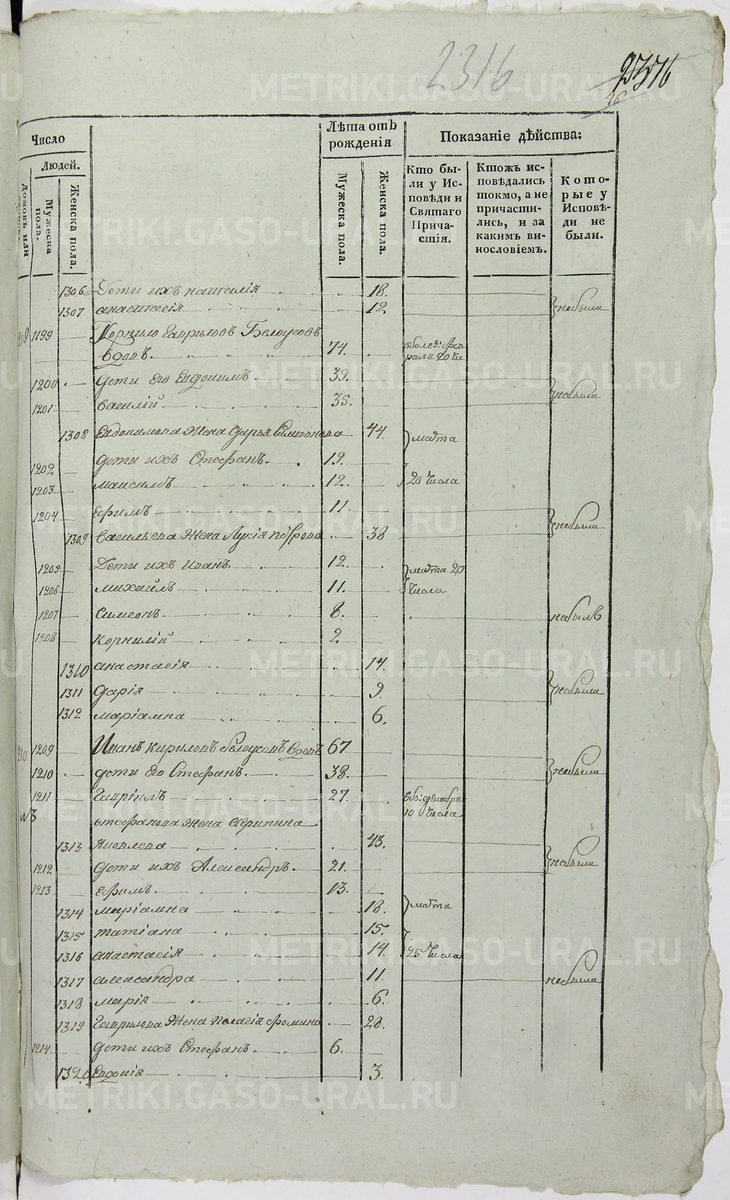 2316
2316
Число
Людей.
Домовъ или
Мужеска пола.
Женска пола.
Лѣта отъ рожденія
Мужеска пола.
Женска пола.
Показаніе дѣйства:
Кто были у Исповѣди и Святаго Причастія.
Ктожъ исповѣдались токмо, а не причастились, и за какимъ винословіемъ.
Которые у Исповѣди не были.
1306 Дети ихъ наталія 18.
1307 анастасія 12 небыли
1199 Корнило Гавриловъ Белоусовъ
вдовъ. 74.
1200 Дети его Евдокимъ 39.
1201 василій 35. небыли
1308 Евдокимова жена Дарья 44.
марта
1202 дети ихъ Стефанъ. 19.
1203 максимъ 12. 20 числа
1204 ефимъ 11.
1309 васильева жена Лукія петрова 38 небыли
1205 Дети ихъ иванъ. 12. марта 20
1206 михайлъ 11. числа
1207 Симеонъ 8. небылъ
1208 корнилій 2
1310 анастасія 14.
1311 дарія 9. небыли
1312 маріамна 6.
210 1209 Иванъ кириловъ белоусовъ вдовъ 67
1210 дети его Стефанъ. 38. небыли
1211 Гаврілъ 27.
10 числа
стефанова жена
1313 яковлева 43.
1212 дети ихъ Александръ. 21. небыли
1213 ефимъ. 13.
1314 маріамна 18. марта
1315 татіана 15.
1316 анастасія 14 25 числа
1317 александра 11. небыли
1318 марія 6.
1319 Гаврилова жена пелагія фомина 28.
1214 дети ихъ Стефанъ. 6.
1320 Евдокія 3.
METRIKI.GASO-URAL.RU